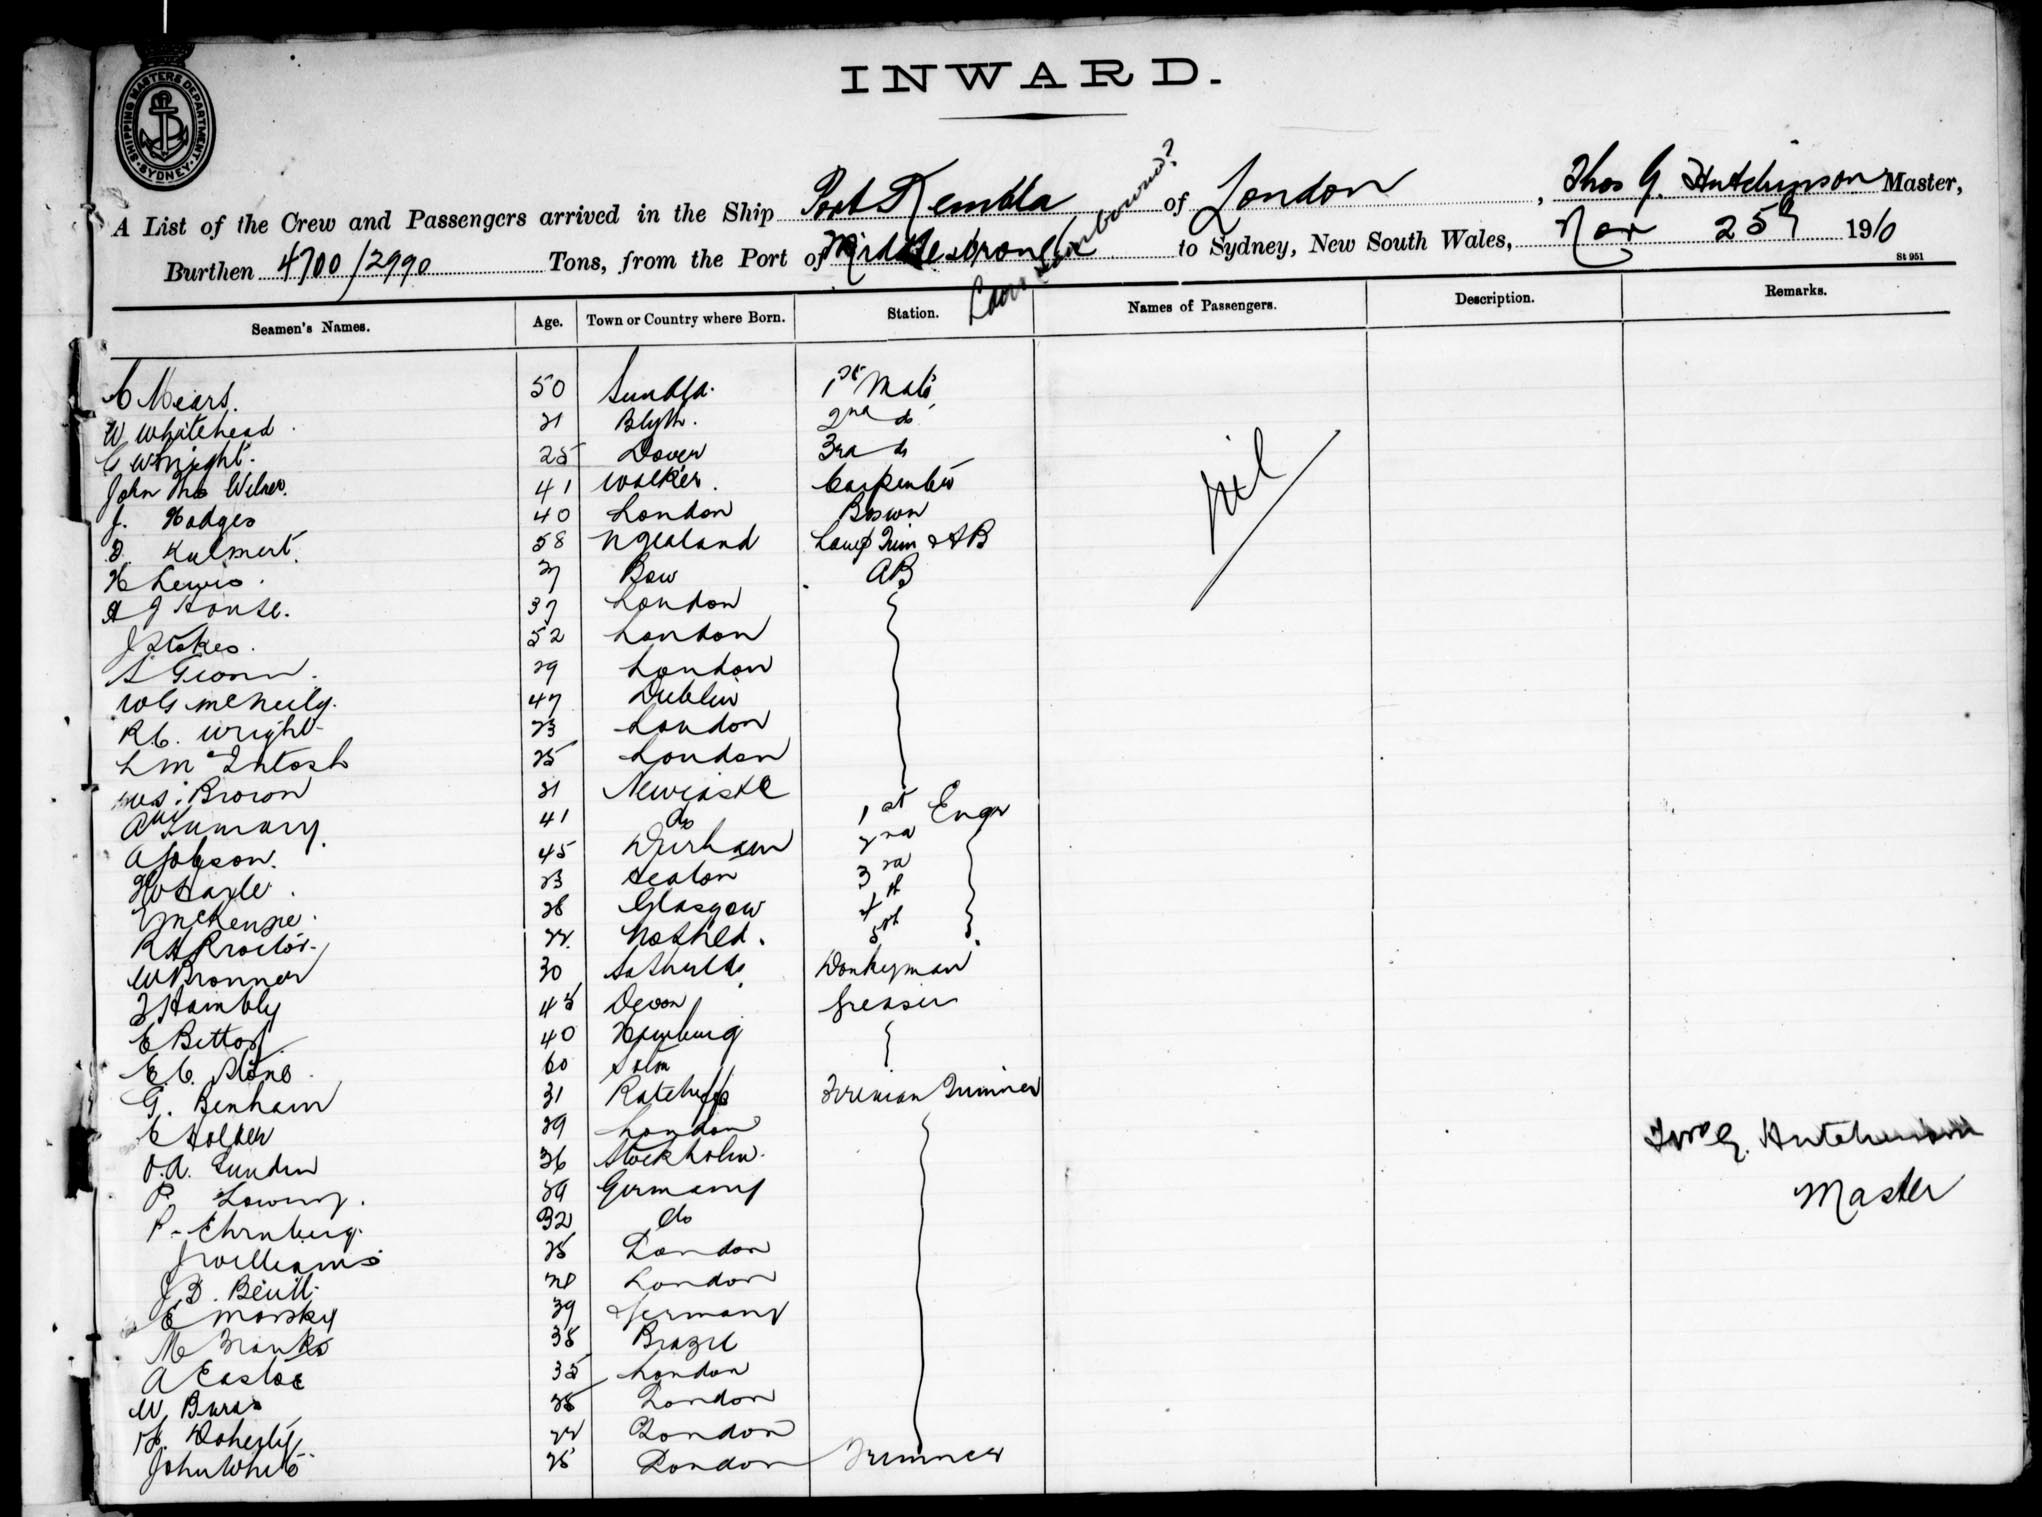 SHIPPING MASTERS DEPARTMENT SYDNEY
INWARD.
A List of the Crew and Passengers arrived in the Ship Port Kembla of London, Thos G. Hutchinson Master,
Burthen 4700/2990 Tons, from the Port of Middlesbrough to Sydney, New South Wales, Nov 25th 1910
St 951
Seamen's Names. Age. Town or Country where Born. Station. Names of Passengers. Description. Remarks.
C Mears. 50 Sundld. 1st Mate
W Whitehead 21 Blyth. 2nd do
C W Knight. 25 Dover 3rd do
John Thos 41 Walker. Carpenter
J. Hodges 40 London Boswn
58 N Zealand Lamp Trim & AB
H Lewis. Bow AB
A J House. 37 London
J Stokes. 52 London
S 29 London
W G McNeily. 47 Dublin
R.C. Wright 23 London
L McIntosh 25 London
Brown 21 Newcastle
41 do 1st Engr
A Jobson. 45 Durham 2nd
23 Seaton 3rd
McKenzie. 28 Glasgow 4th
R H Proctor. 22 No Shld. 5th
W Bronner 30 So Shields Donkeyman
Hambly 45 Devon Greaser
E 40 Hamburg
E.C. Stone 60
G. Benham 31 Ratcliffe Fireman Trimmer
E Holder 29 London
O.A. Lundin 36 Stockholm.
P. 39 Germany
P. Ehrnberg. 32 do
J Williams 25 London
J B. London
E Morsky 39 Germany
M Franks 38 Brazil
A Eastoe 35 London
W. Burns 25 London
H. Doherty 22 London
John White 25 London Trimmer
Nil
Thos G. Hutchinson
Master